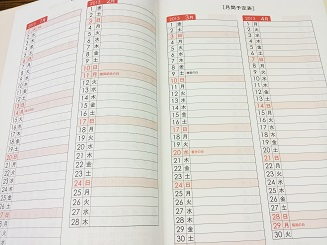 1月
13 日
14 月
15 火
16 水
17 木
18 金
19 土
20 日
21 月
22 火
23 水
24 木
25 金
26 土
2013 2月
3 日
4 月
5 火
6 水
7 木
8 金
9 土
10 日
11 月 建国記念の日
12 火
13 水
14 木
15 金
16 土
17 日
18 月
19 火
20 水
21 木
22 金
23 土
24 日
25 月
26 火
27 水
28 木
［月間予定表］
2013 3月
1 金
2 土
3 日
4 月
5 火
6 水
7 木
8 金
9 土
10 日
11 月
12 火
13 水
14 木
15 金
16 土
17 日
18 月
19 火
20 水 春分の日
21 木
22 金
23 土
24 日
25 月
26 火
27 水
28 木
29 金
30 土
2013 4月
1 月
2 火
3 水
4 木
5 金
6 土
7 日
8 月
9 火
10 水
11 木
12 金
13 土
14 日
15 月
16 火
17 水
18 木
19 金
20 土
21 日
22 月
23 火
24 水
25 木
26 金
27 土
28 日
29 月 昭和の日
30 火